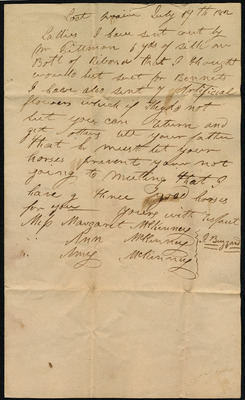 Lost Prairie July 19th 1842
Ladies I have sent out by
Mr Tittman 6 yds of silk an
Bolt of Ribond that I thought
would but suit for Bonnets
I have also sent 4 Artificial
flowers which if they do not
suit you can return and
get others tell your father
that he must let your
horses prevent you not
going to Meeting that I
have 2 or three good horses
for you yours with Respect
Miss Margaret McKinney
Ann McKinney
Amy McKinney